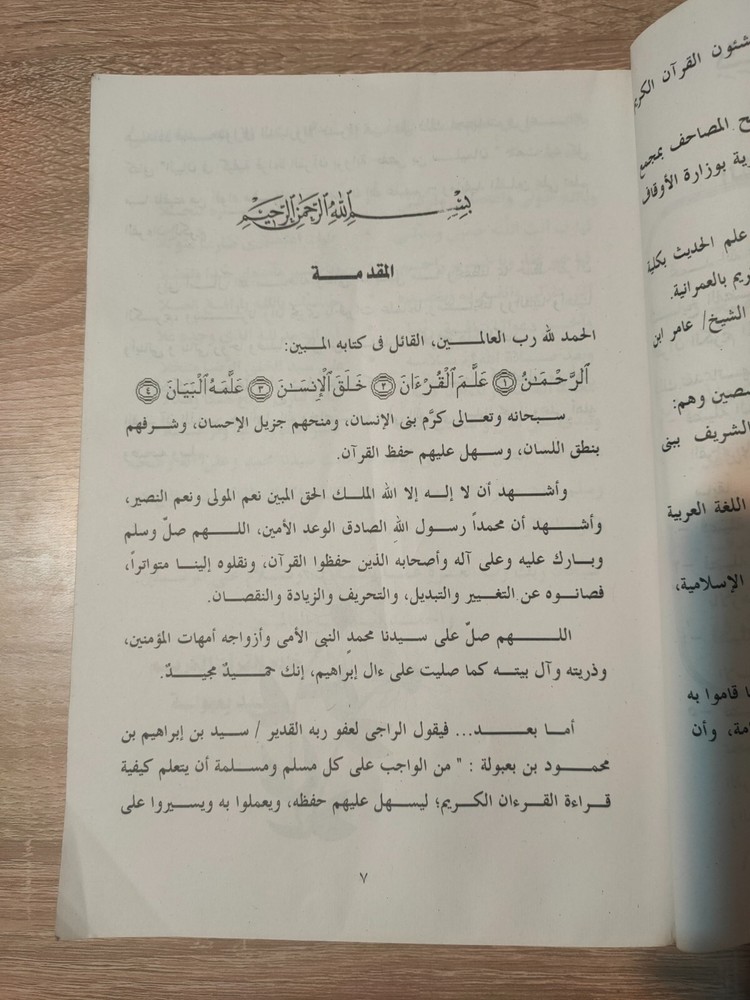 بِسْمِ اللَّهِ الرَّحْمَٰنِ الرَّحِيمِ
المقدمة
الحمد لله رب العالمين، القائل فى كتابه المبين:
ٱلرَّحْمَـٰنُ ١ عَلَّمَ ٱلْقُرْءَانَ ٢ خَلَقَ ٱلْإِنسَـٰنَ ٣ عَلَّمَهُ ٱلْبَيَانَ ٤
سبحانه وتعالى كرَّم بنى الإنسان، ومنحهم جزيل الإحسان، وشرفهم
بنطق اللسان، وسهل عليهم حفظ القرآن.
وأشهد أن لا إله إلا الله الملك الحق المبين نعم المولى ونعم النصير،
وأشهد أن محمداً رسول اللهِ الصادق الوعد الأمين، اللهم صلّ وسلم
وبارك عليه وعلى آله وأصحابه الذين حفظوا القرآن، ونقلوه إلينا متواتراً،
فصانوه عن التغيير والتبديل، والتحريف والزيادة والنقصان.
اللهم صلّ على سيدنا محمدٍ النبى الأمى وأزواجه أمهات المؤمنين،
وذريته وآل بيته كما صليت على ءال إبراهيم، إنك حميدٌ مجيدٌ.
أما بعد... فيقول الراجى لعفو ربه القدير / سيد بن إبراهيم بن
محمود بن بعبولة : " من الواجب على كل مسلم ومسلمة أن يتعلم كيفية
قراءة القرءان الكريم؛ ليسهل عليهم حفظه، ويعملوا به ويسيروا على
٧
شئون القرآن الكري
ح المصاحف بمجمع
رية بوزارة الأوقاف
علم الحديث بكلية
ريم بالعمرانية.
الشيخ/ عامر ابن
صصين وهم:
الشريف ببنى
اللغة العربية
الإسلامية،
ا قاموا به
امة، وأن